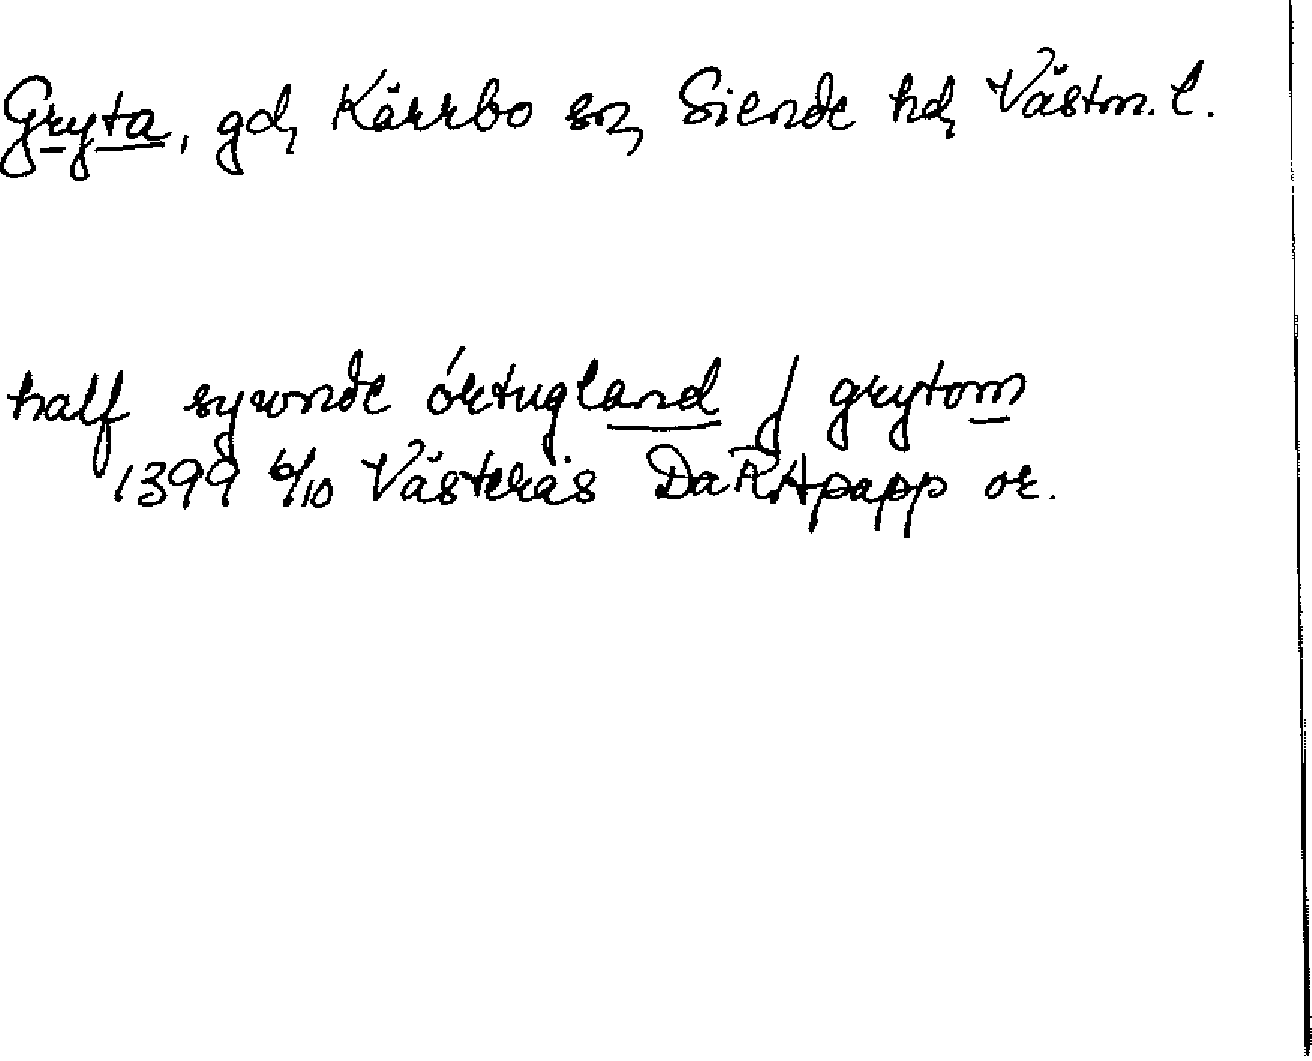 Gryta, gd, Kärrbo sn, Siende hd, Västm. l.
half sywnde örtugland j grytom
1399 6/10 Västerås DaRApapp or.